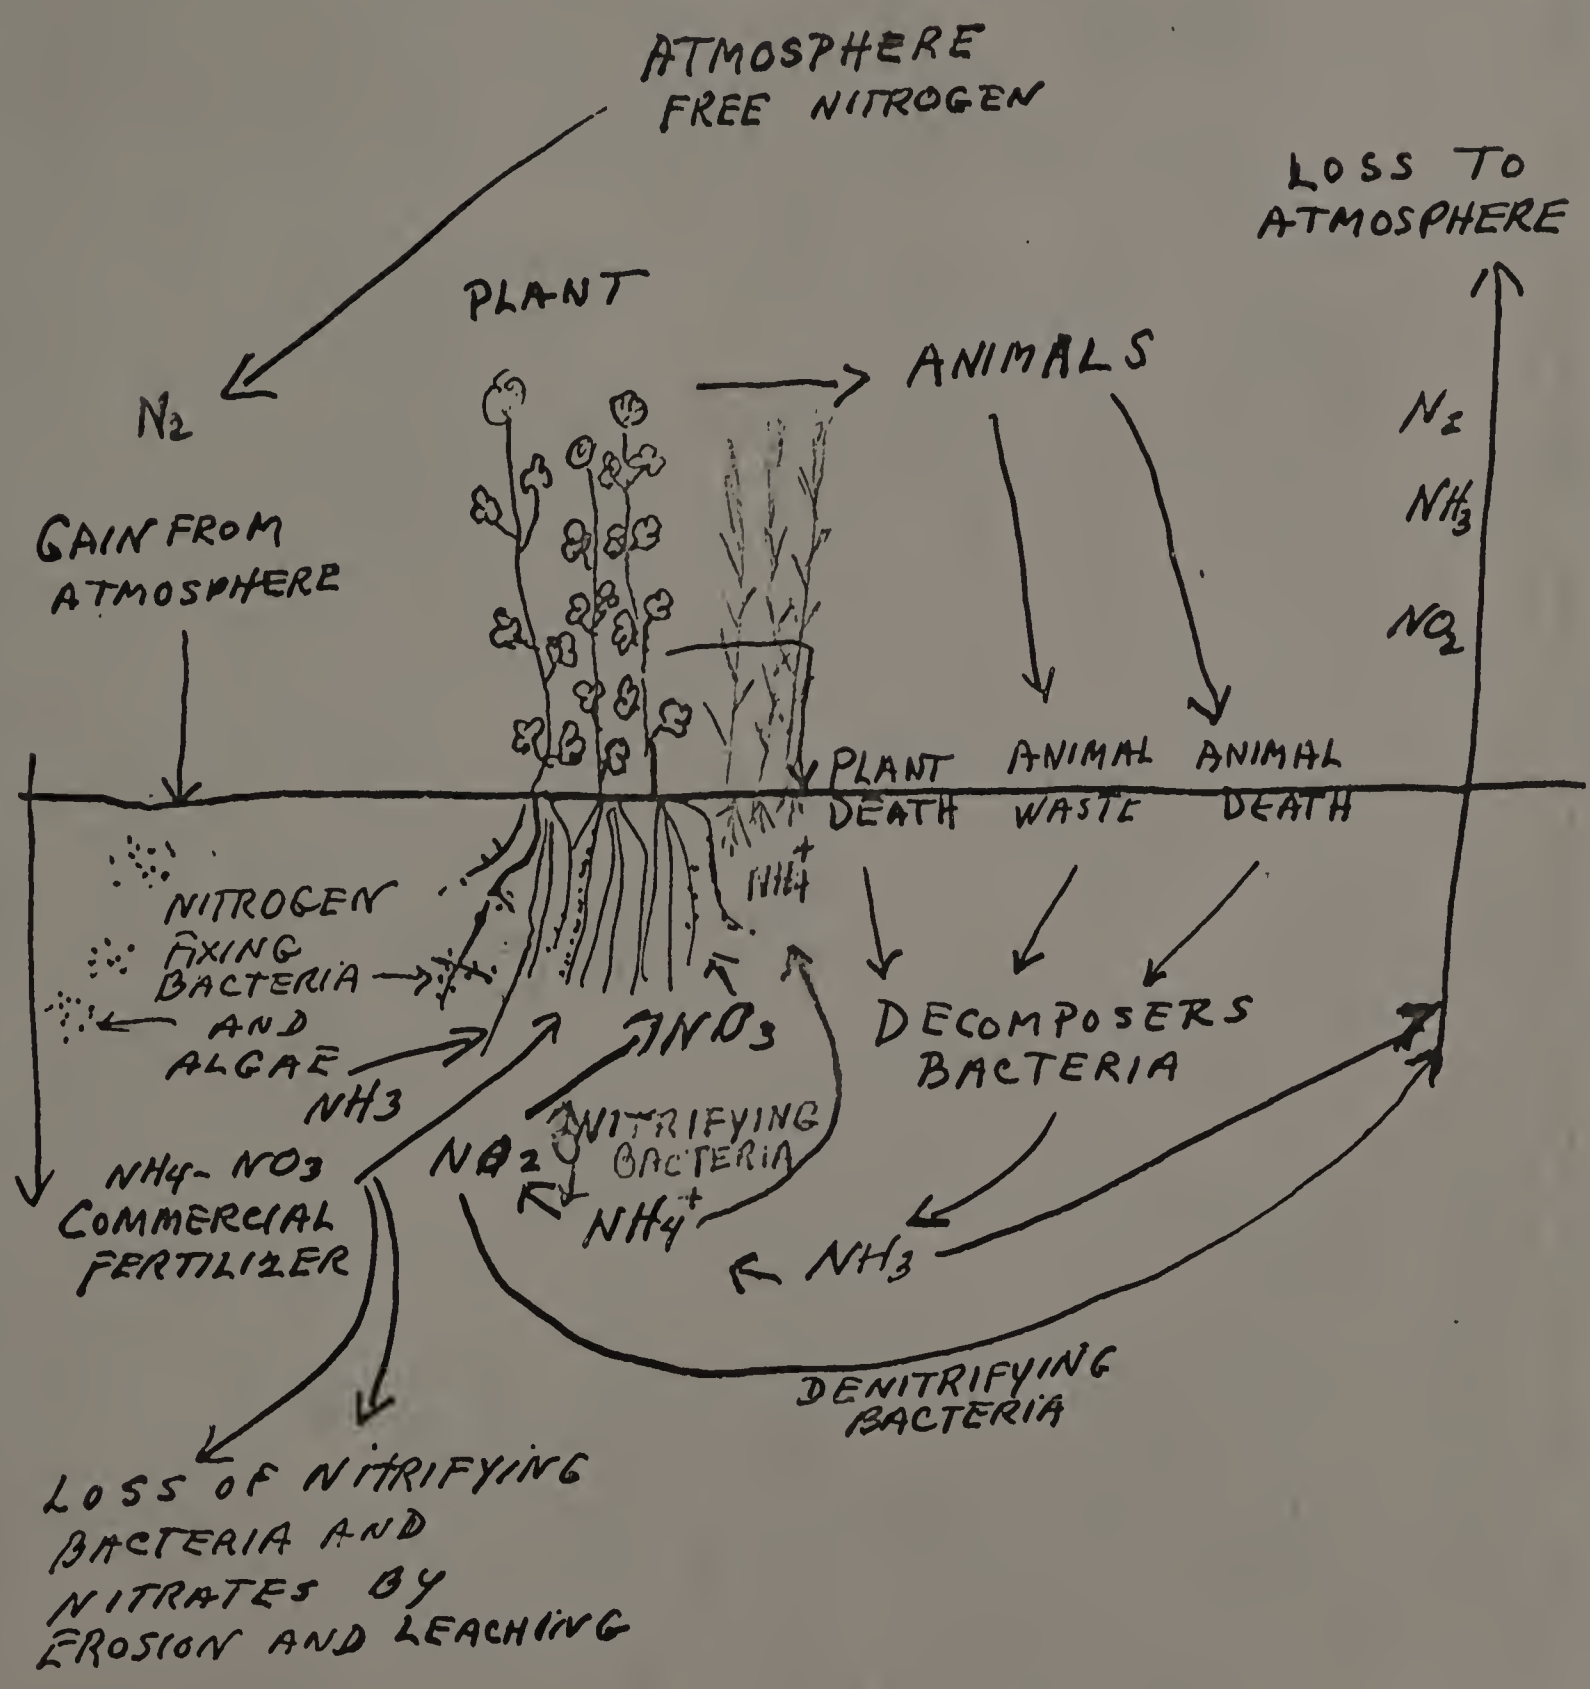 ATMOSPHERE
FREE NITROGEN
LOSS TO
ATMOSPHERE
PLANT
ANIMALS
N2
N2
NH3
NO2
GAIN FROM
ATMOSPHERE
PLANT
DEATH
ANIMAL
WASTE
ANIMAL
DEATH
NH4+
NITROGEN
FIXING
BACTERIA
AND
ALGAE
NH3
NO3
DECOMPOSERS
BACTERIA
NITRIFYING
BACTERIA
NO2
NH4+
NH3
NH4-NO3
COMMERCIAL
FERTILIZER
DENITRIFYING
BACTERIA
LOSS OF NITRIFYING
BACTERIA AND
NITRATES BY
EROSION AND LEACHIING